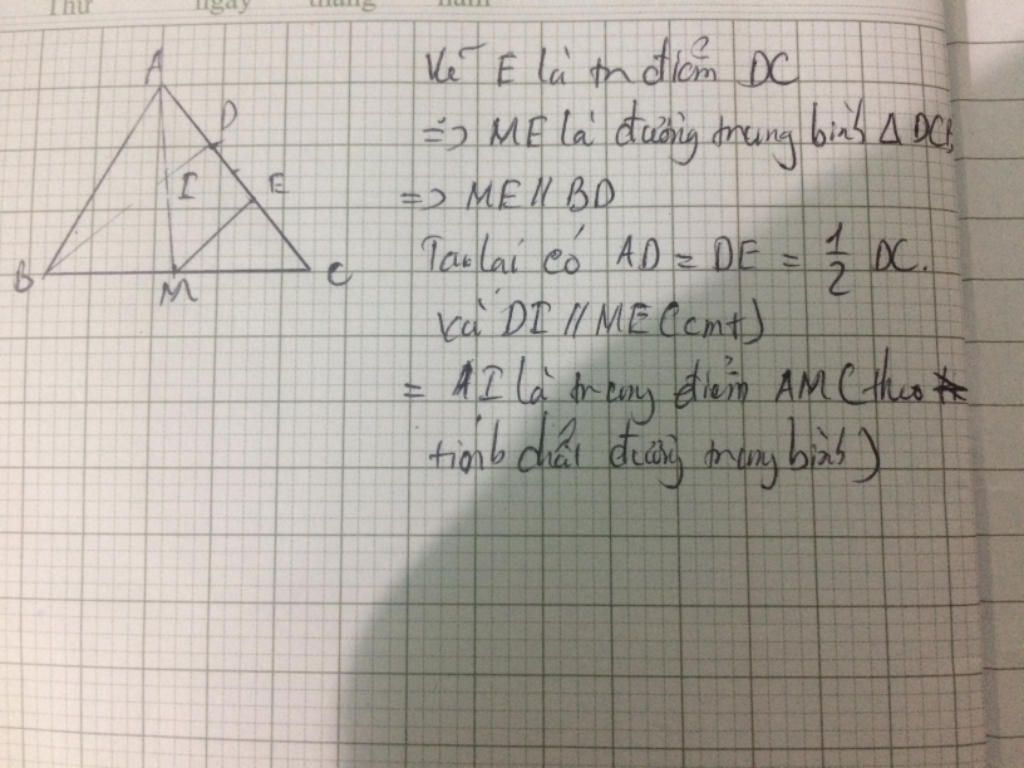 Thứ ngày tháng năm
A
D
I
E
B
M
C
Kẻ E là tr điểm DC
=> ME là đường trung bình Δ DCB
=> ME // BD
Ta lại có AD = DE = 1/2 DC.
và DI // ME (cmt)
= AI là trung điểm AM (theo
tính chất đường trung bình)